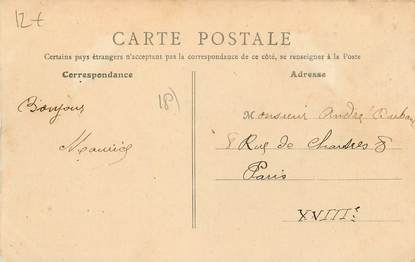 12€
CARTE POSTALE
Certains pays étrangers n'acceptant pas la correspondance de ce côté, se renseigner à la Poste
Correspondance
Adresse
Bonjour
Maurice
18)
Monsieur André
8 Rue de Chartres 8
Paris
XVIIIe